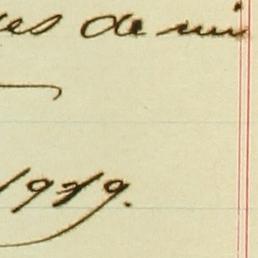 es de mi
1919.